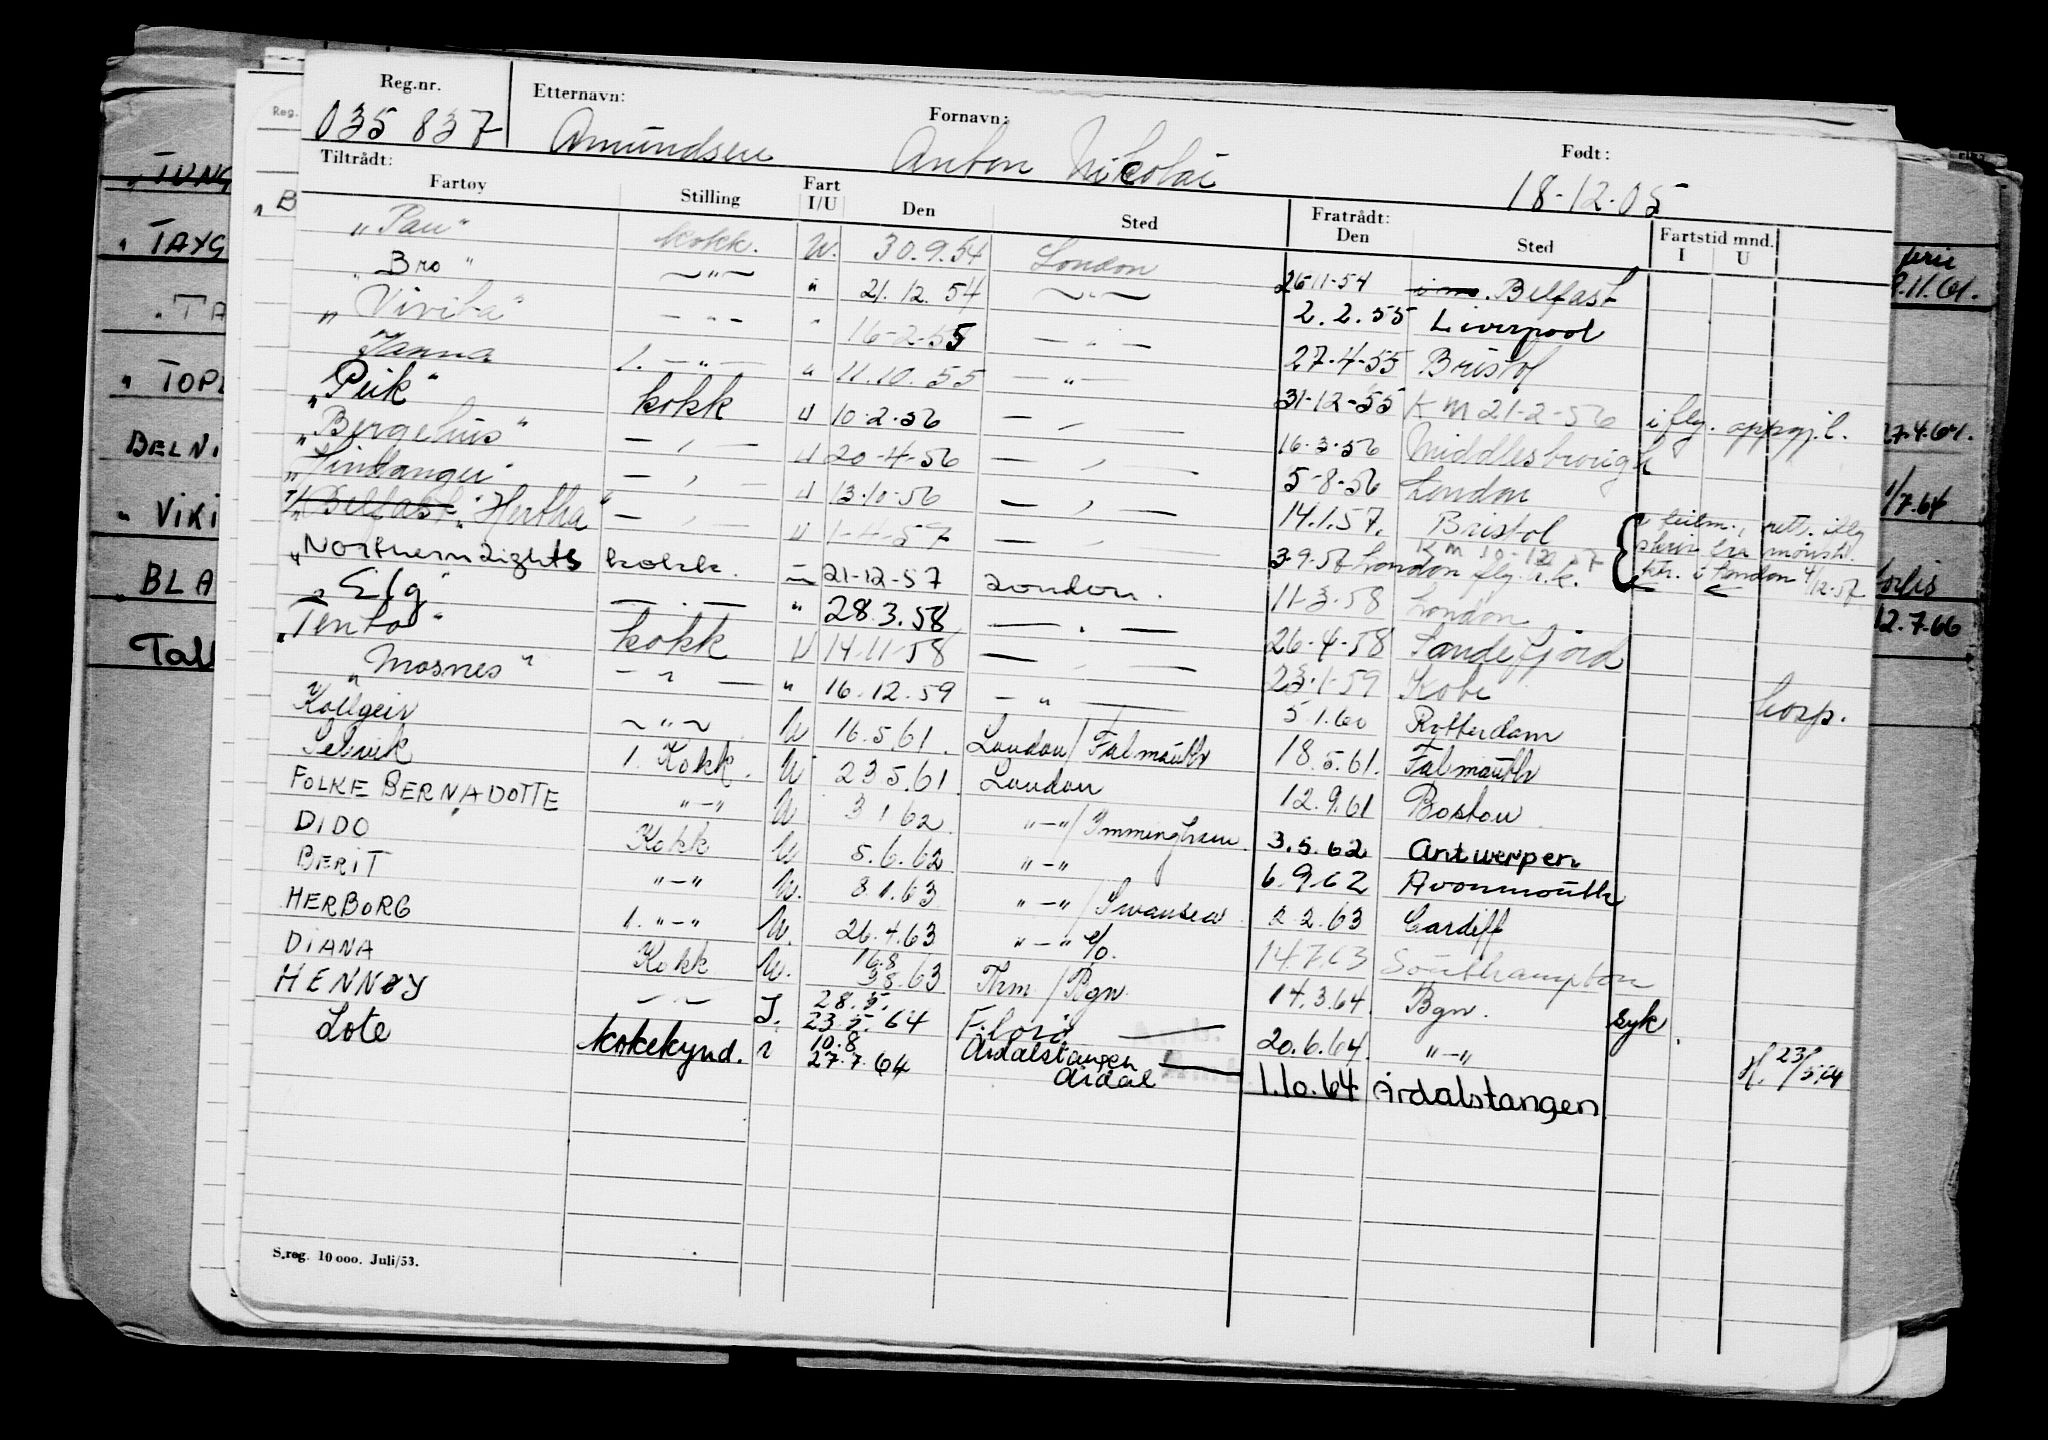 Reg.nr. Etternavn: Fornavn: Født:
035 837 Amundsen Anton Nikolai 18-12-05
Tiltrådt: Fratrådt: Fartstid mnd.
Fartøy Stilling Fart I/U Den Sted Den Sted I U
"Pan" kokk. U. 30.9.54 London 26-11-54 Belfast
"Bro" —"— " 21.12.54 —"— 2.2.55 Liverpool
"Virita" —"— " 16-2-55 —"— 27-4-55 Bristol
Janna 1. —"— " 11.10.55 —"— 31-12-55 KM 21-2-56 i flg. oppgj.l.
"Piik" kokk U 10-2-56 —"— 16-3-56 Middlesbrough
"Bergehus" —"— U 20-4-56 —"— 5-8-56 London
"Vindanger" —"— U 13-10-56 —"— 14.1.57. Bristol
T/T Belfast "Hertha" —"— U 1-4-57 —"— 3-9-57 London flg. r.k. KM 10-12-57 { London 4/12-57
"Northern Lights kokk. — 21-12-57 London. 11-3-58 London
"Elg" —"— " 28.3.58 —"— 26-4-58 Sandefjord
"Tento" kokk U 14-11-58 —"— 23-1-59 Kobe hosp.
"Mosnes" —"— " 16.12.59 —"— 5.1.60 Rotterdam
Kollgeir —"— U 16.5.61. London/Falmouth 18.5.61. Falmouth
Selvik 1. Kokk. U 23 5.61. London 12.9.61 Boston
FOLKE BERNADOTTE "—" U 3 1 62 "—"/Immingham 3.5.62 Antwerpen
DIDO Kokk U 5.6.62 "—" 6.9.62 Avonmouth
BERIT "—" U. 8 1.63 "—"/Swansea 2 2.63 Cardiff
HERBORG 1. "—" U. 26.4.63 "—" %. 14.7.63 Southampton
DIANA Kokk U. 16.8 3 8.63 Thm/Bgn. 14.3.64. Bgn. syk
HENNØY —"— I. 28.5. 23 5.64 Florø 20.6.64. "—" H. 23/5.64
Lote kokekynd. i 10.8 27.7.64 Årdalstangen Årdal 1.10.64 Årdalstangen
S.reg. 10 000. Juli/53.
"TUNG
"TAYG
"TA
"TOPL
BELNI
"VIKI
"BLA
Tall
"B
Reg.
9.11.61.
27.4.64.
1/7.64
12.7.66